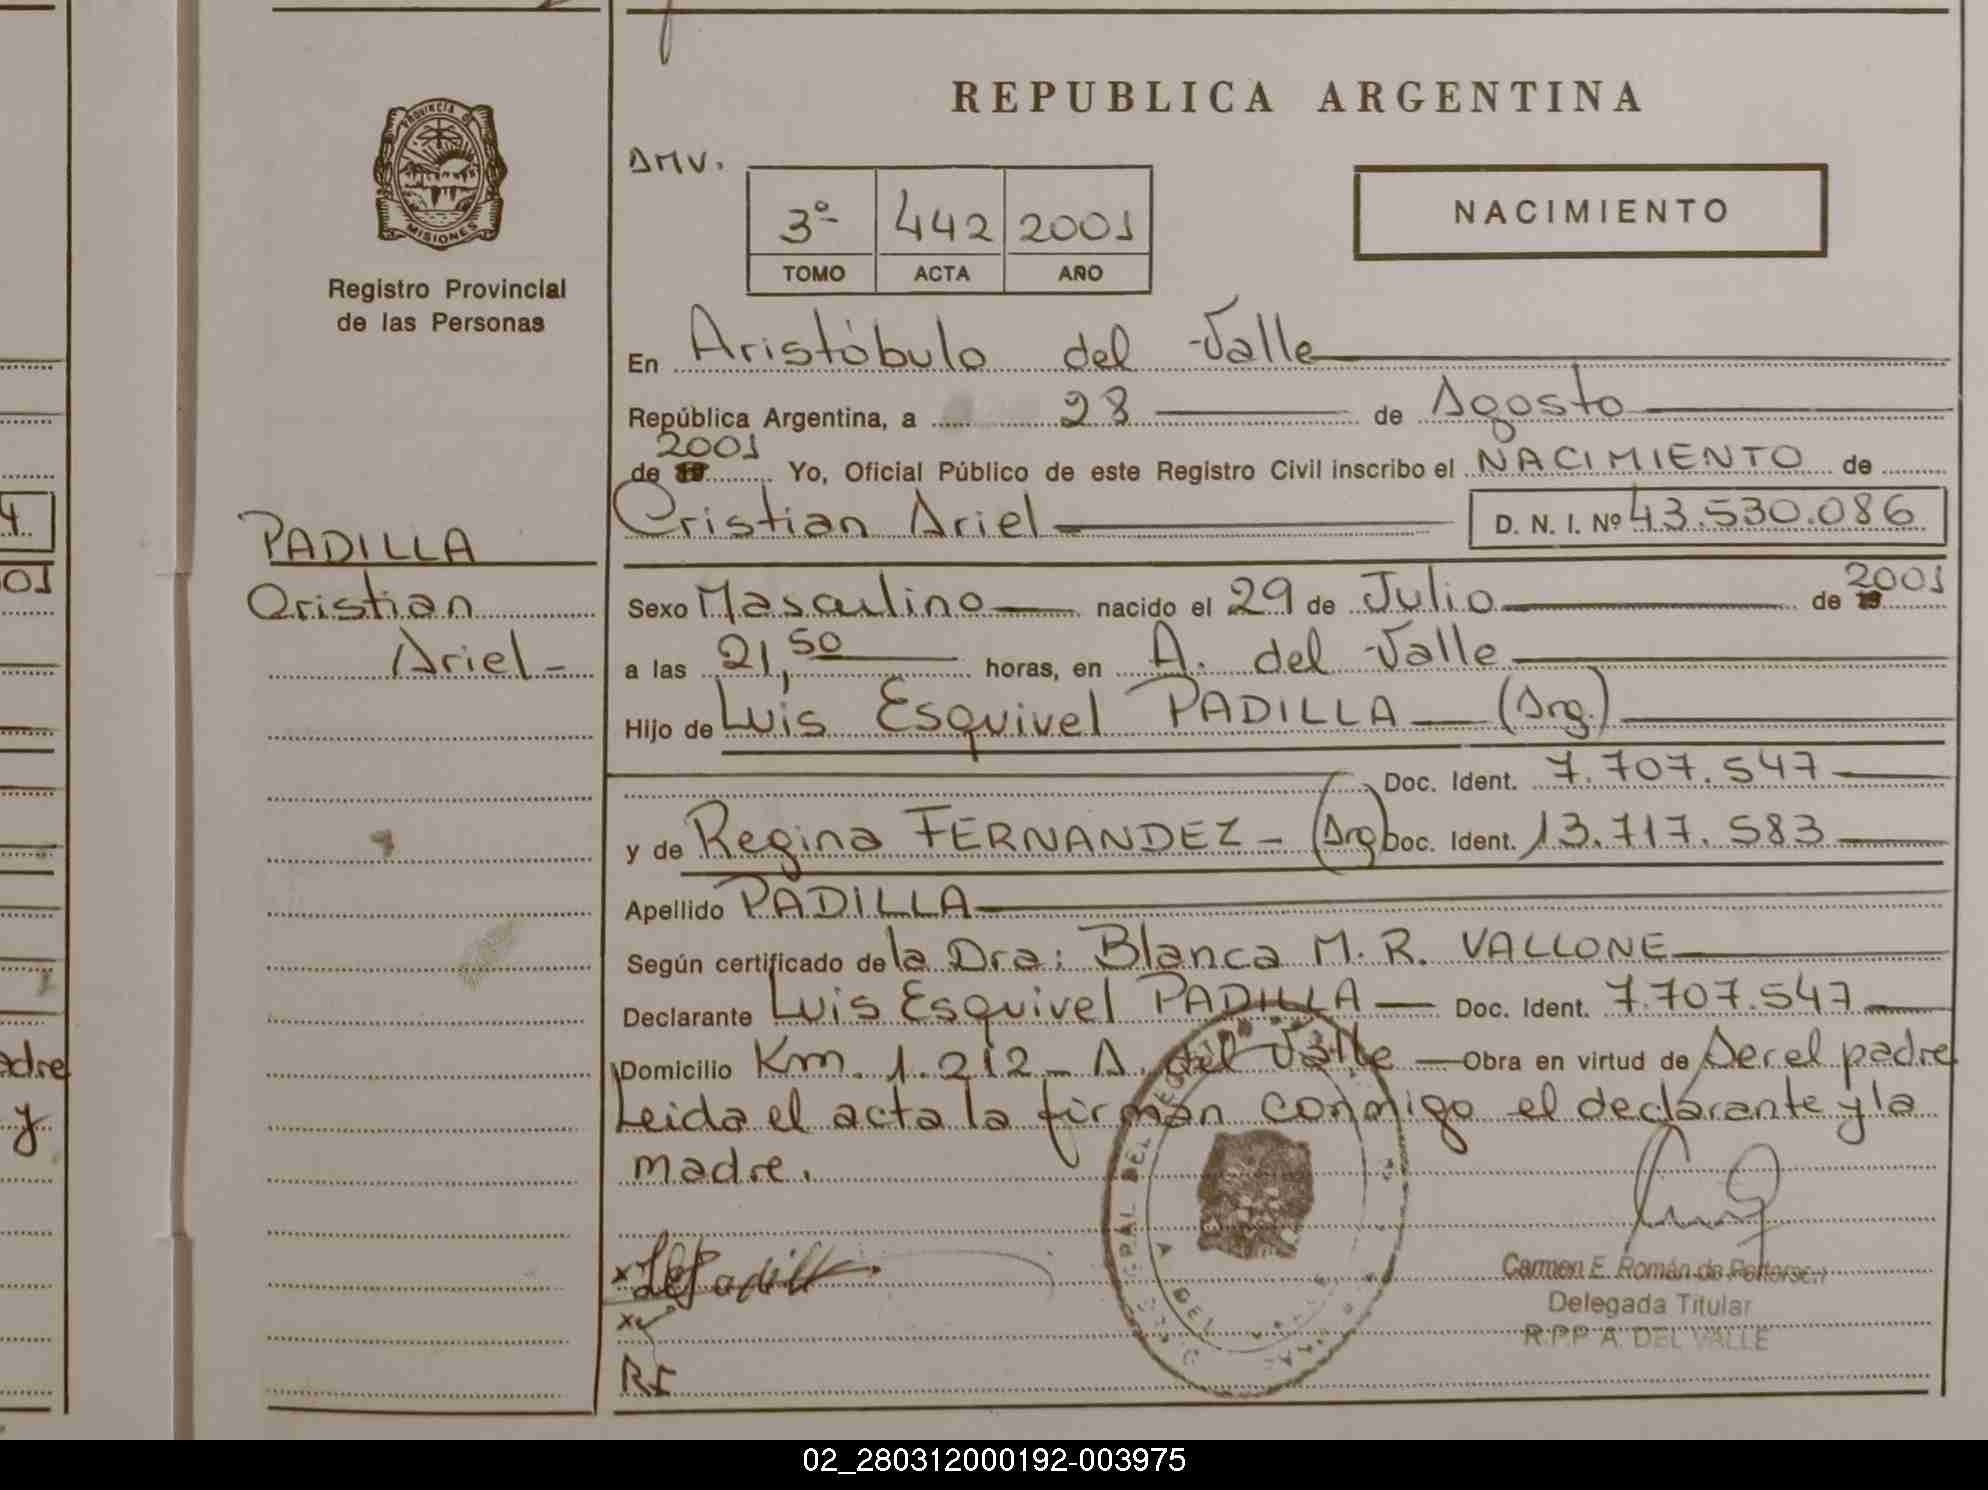 REPUBLICA ARGENTINA
PROVINCIA DE
MISIONES
Registro Provincial
de las Personas
AMV.
3º 442 2001
TOMO ACTA AÑO
NACIMIENTO
En Aristóbulo del Valle
República Argentina, a 28 de Agosto
de 2001 Yo, Oficial Público de este Registro Civil inscribo el NACIMIENTO de
Cristian Ariel D. N. I. Nº 43.530.086
PADILLA
Cristian
Ariel-
Sexo Masculino nacido el 29 de Julio de 2001
a las 21,50 horas, en A. del Valle
Hijo de Luis Esquivel PADILLA (Arg.)
Doc. Ident. 7.707.547
y de Regina FERNANDEZ - (Arg) Doc. Ident. 13.717.583
Apellido PADILLA
Según certificado de la Dra: Blanca M. R. VALLONE
Declarante Luis Esquivel PADILLA Doc. Ident. 7.707.547
Domicilio Km. 1.212 - A. del Valle Obra en virtud de Ser el padre
Leida el acta la firman conmigo el declarante y la
madre.
Carmen E. Román de
Delegada Titular
R.P.P A. DEL VALLE
RF
adre
y
01
4.
02_280312000192-003975